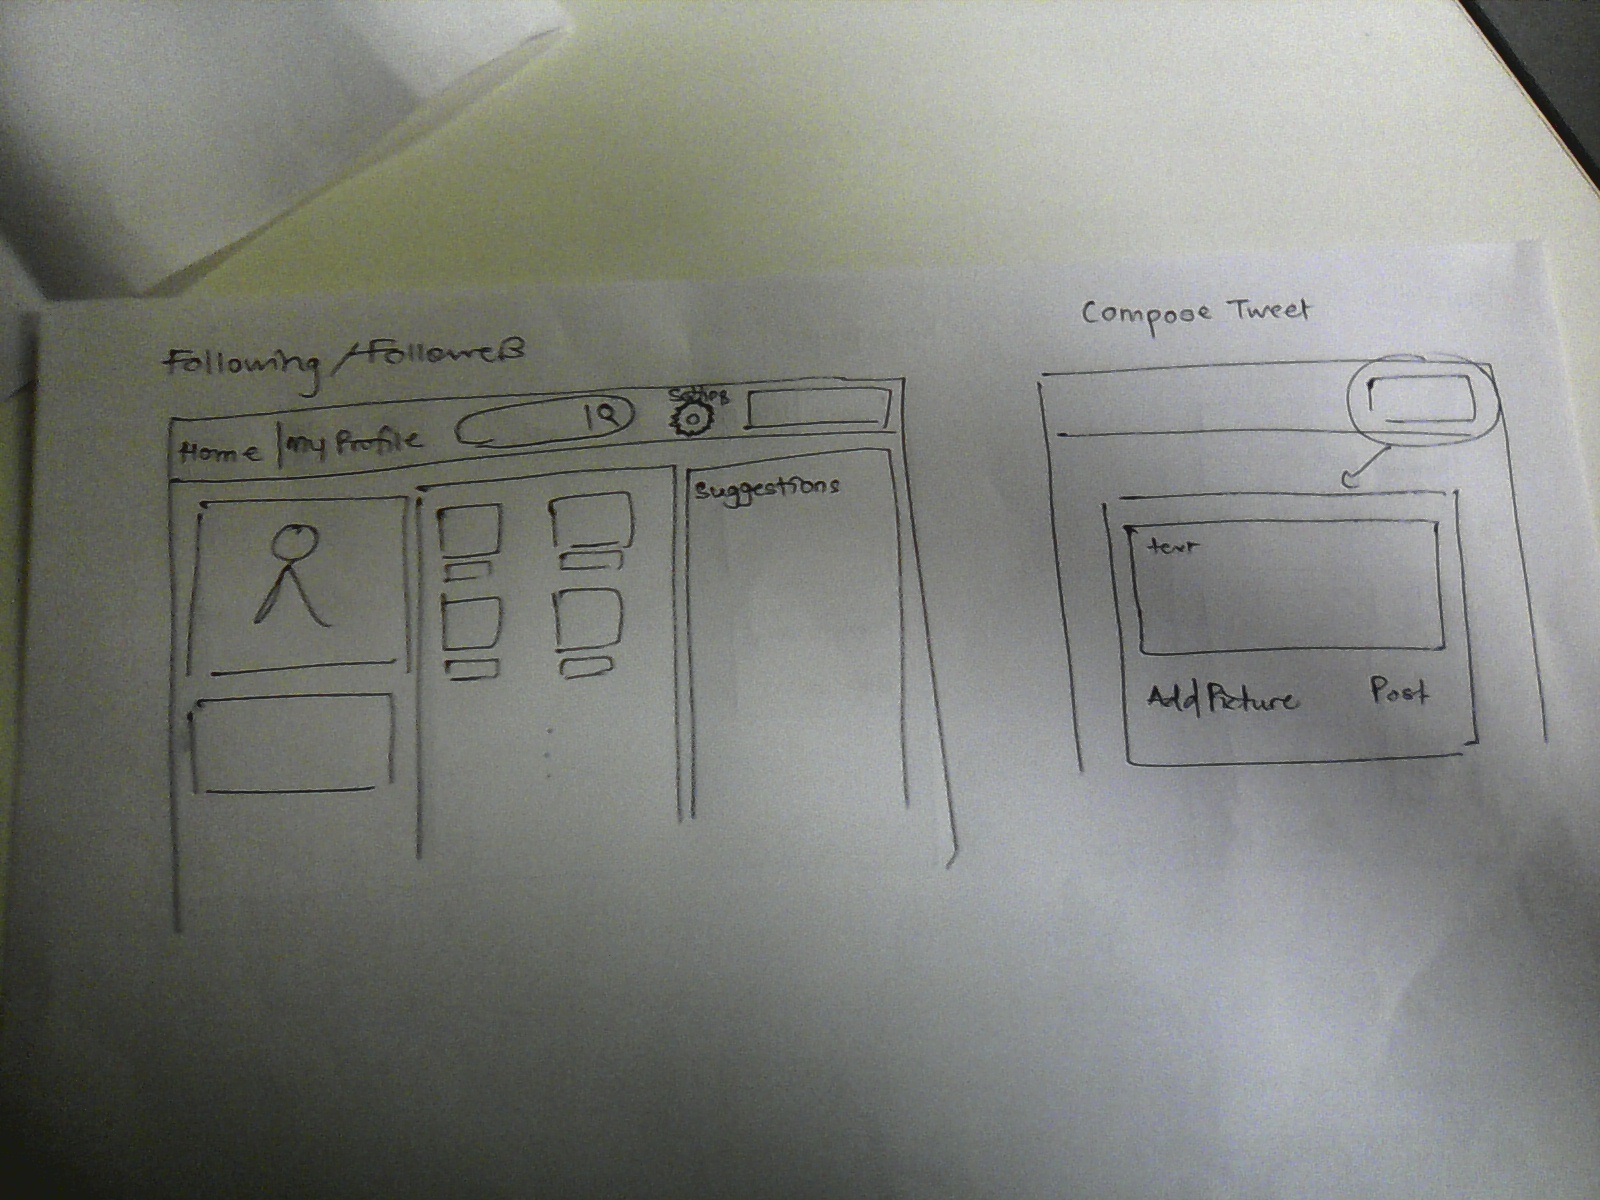 Following / Followers
Home | My Profile
Settings
Suggestions
Compose Tweet
text
Add Picture Post